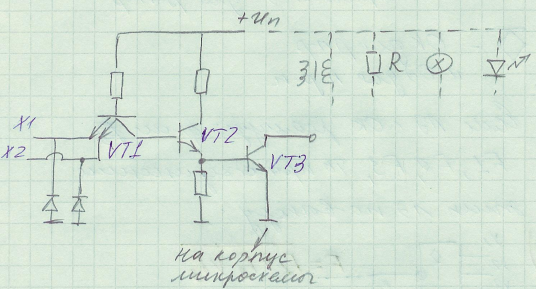 +Uп
R
X1
X2
VT1
VT2
VT3
на корпус
микросхемы